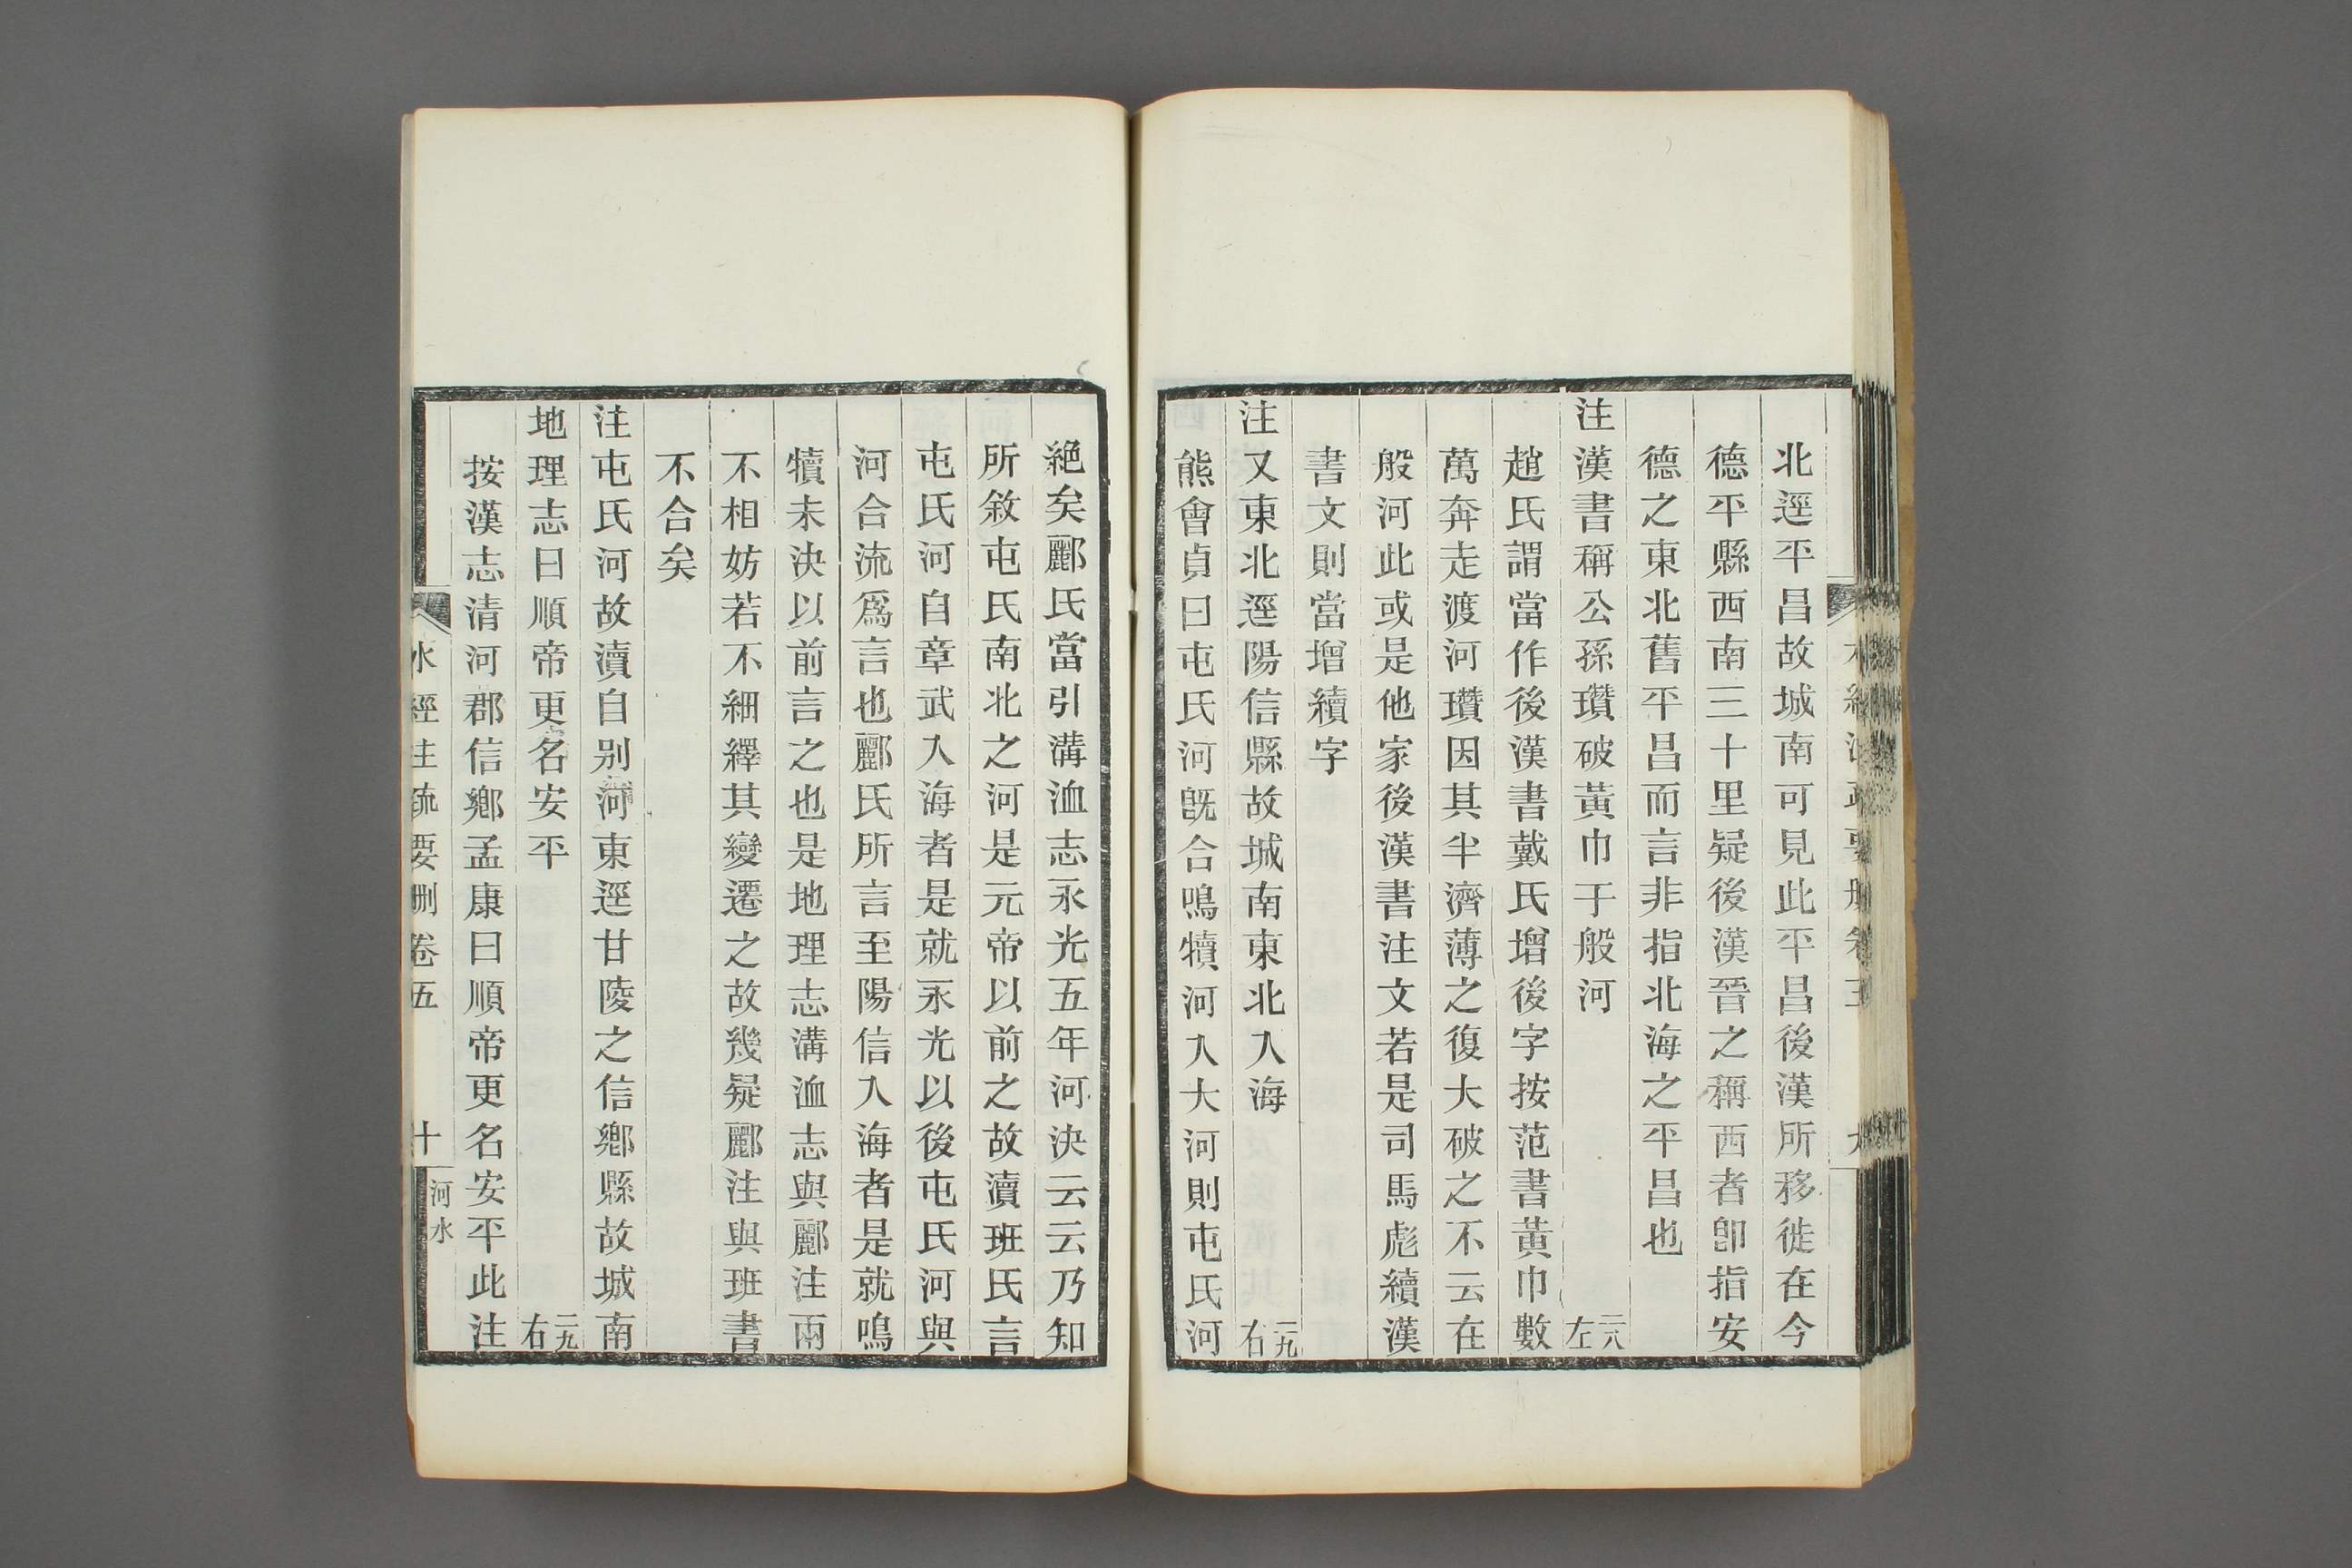 北逕平昌故城南可見此平昌後漢所移徙在今
德平縣西南三十里疑後漢晉之稱西者卽指安
德之東北舊平昌而言非指北海之平昌也
注漢書稱公孫瓚破黃巾于般河 二八左
趙氏謂當作後漢書戴氏增後字按范書黃巾數
萬奔走渡河瓚因其半濟薄之復大破之不云在
般河此或是他家後漢書注文若是司馬彪續漢
書文則當增續字
注又東北逕陽信縣故城南東北入海 二九右
熊會貞曰屯氏河旣合鳴犢河入大河則屯氏河
絕矣酈氏當引溝洫志永光五年河決云云乃知
所敘屯氏南北之河是元帝以前之故瀆班氏言
屯氏河自章武入海者是就永光以後屯氏河與
河合流爲言也酈氏所言至陽信入海者是就鳴
犢未決以前言之也是地理志溝洫志與酈注兩
不相妨若不細繹其變遷之故幾疑酈注與班書
不合矣
注屯氏河故瀆自别河東逕甘陵之信鄉縣故城南
地理志曰順帝更名安平 二九右
按漢志清河郡信鄉孟康曰順帝更名安平此注
水經注疏要刪卷五 十 河水